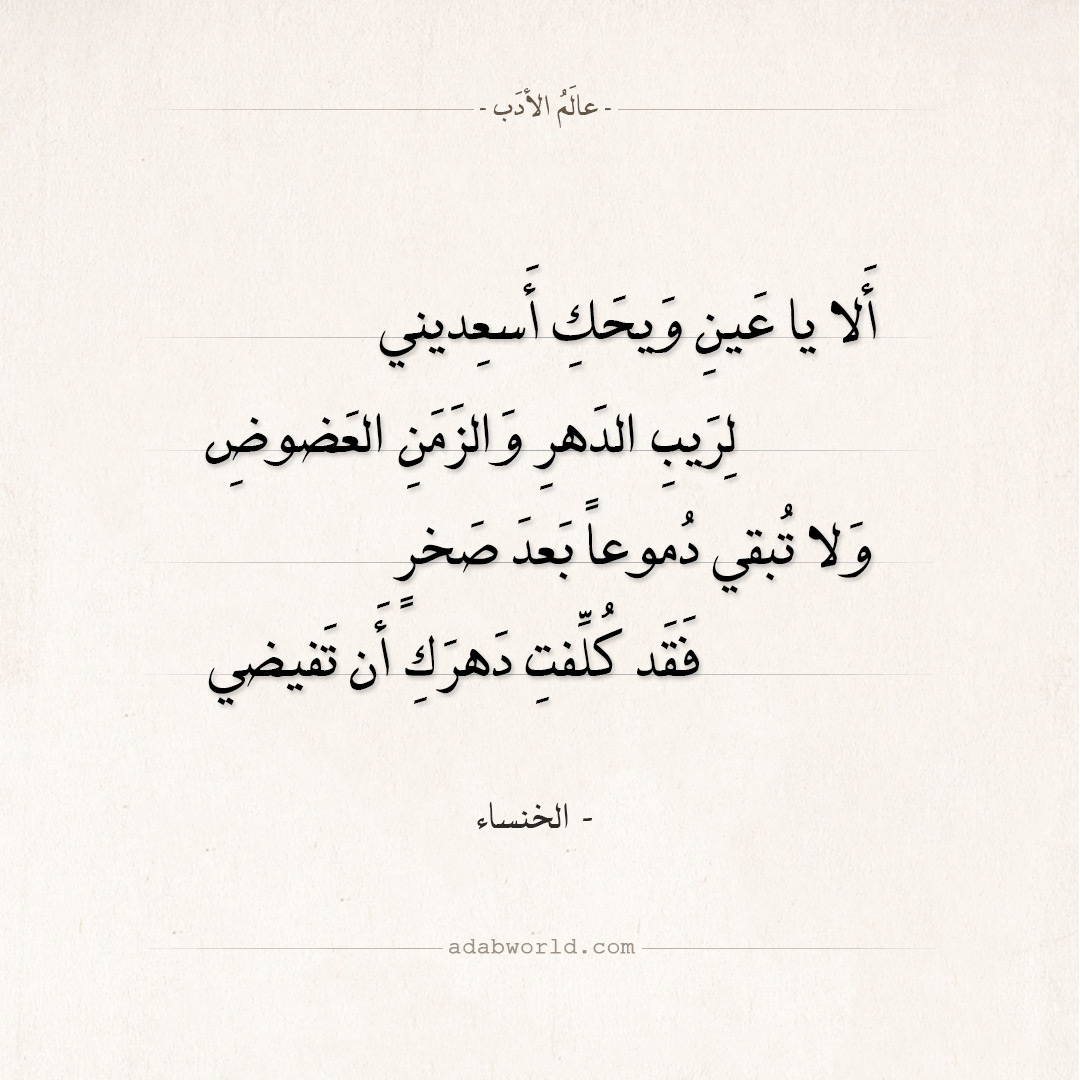 - عالَمُ الأدَب -
أَلا يا عَينِ وَيحَكِ أَسعِديني
لِرَيبِ الدَهرِ وَالزَمَنِ العَضوضِ
وَلا تُبقي دُموعاً بَعدَ صَخرٍ
فَقَد كُلِّفتِ دَهرَكِ أَن تَفيضي
- الخنساء
adabworld.com